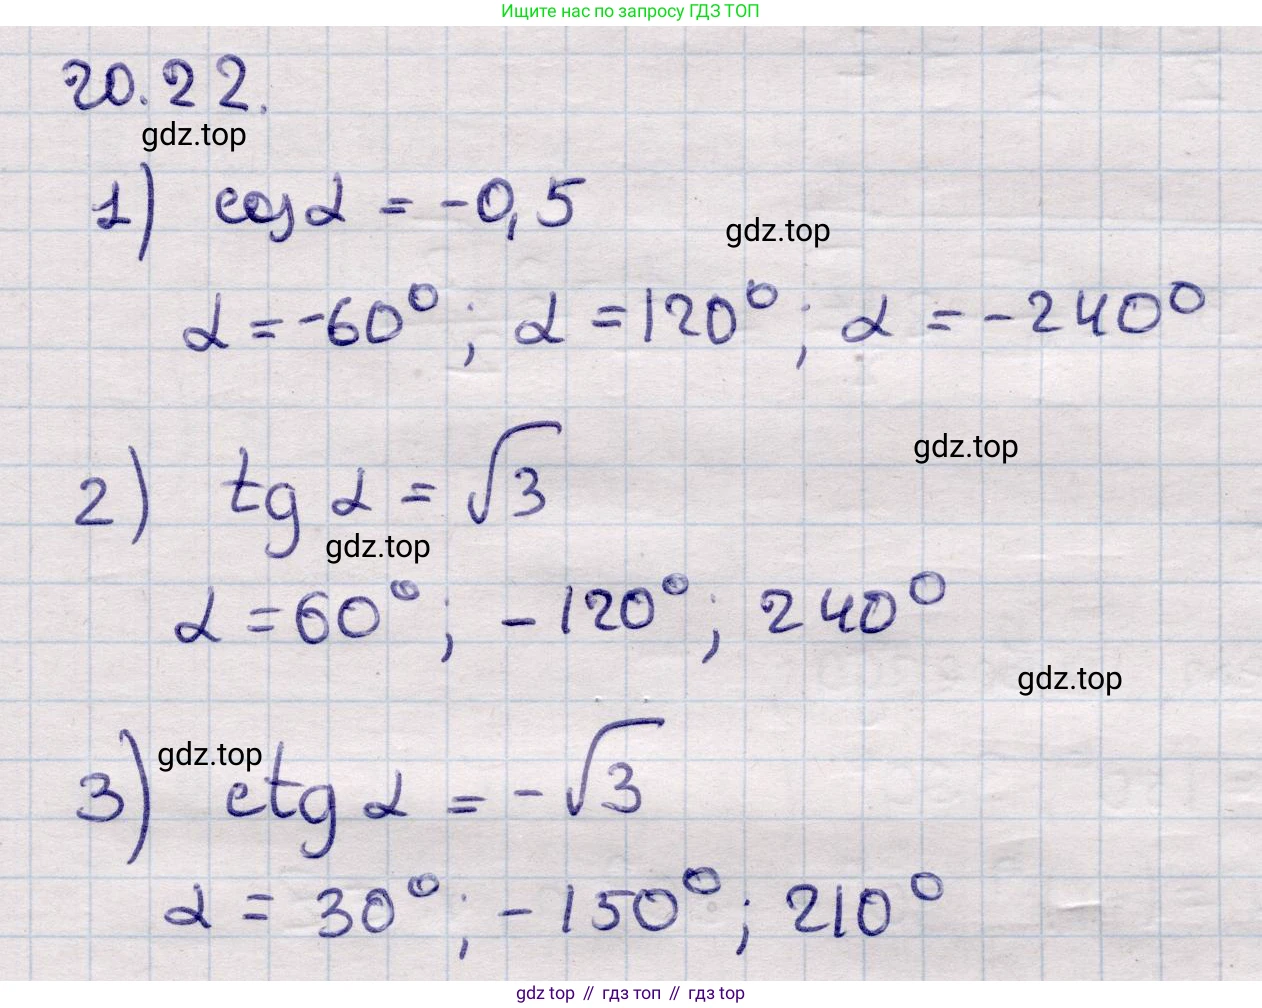 Ищите нас по запросу ГДЗ ТОП
20.22.
gdz.top
1) cos α = -0,5
gdz.top
α = -60°; α = 120°; α = -240°
gdz.top
2) tg α = √3
gdz.top
α = 60°; -120°; 240°
gdz.top
gdz.top
3) ctg α = -√3
α = 30°; -150°; 210°
gdz top // гдз топ // гдз top